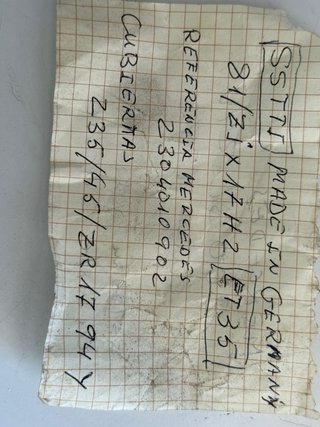 MADE IN GERMANY
81/2j x 17H2 ET35
REFERENCIA MERCEDES
2304010902
CUBIERTAS
235/45/ZR17 94Y